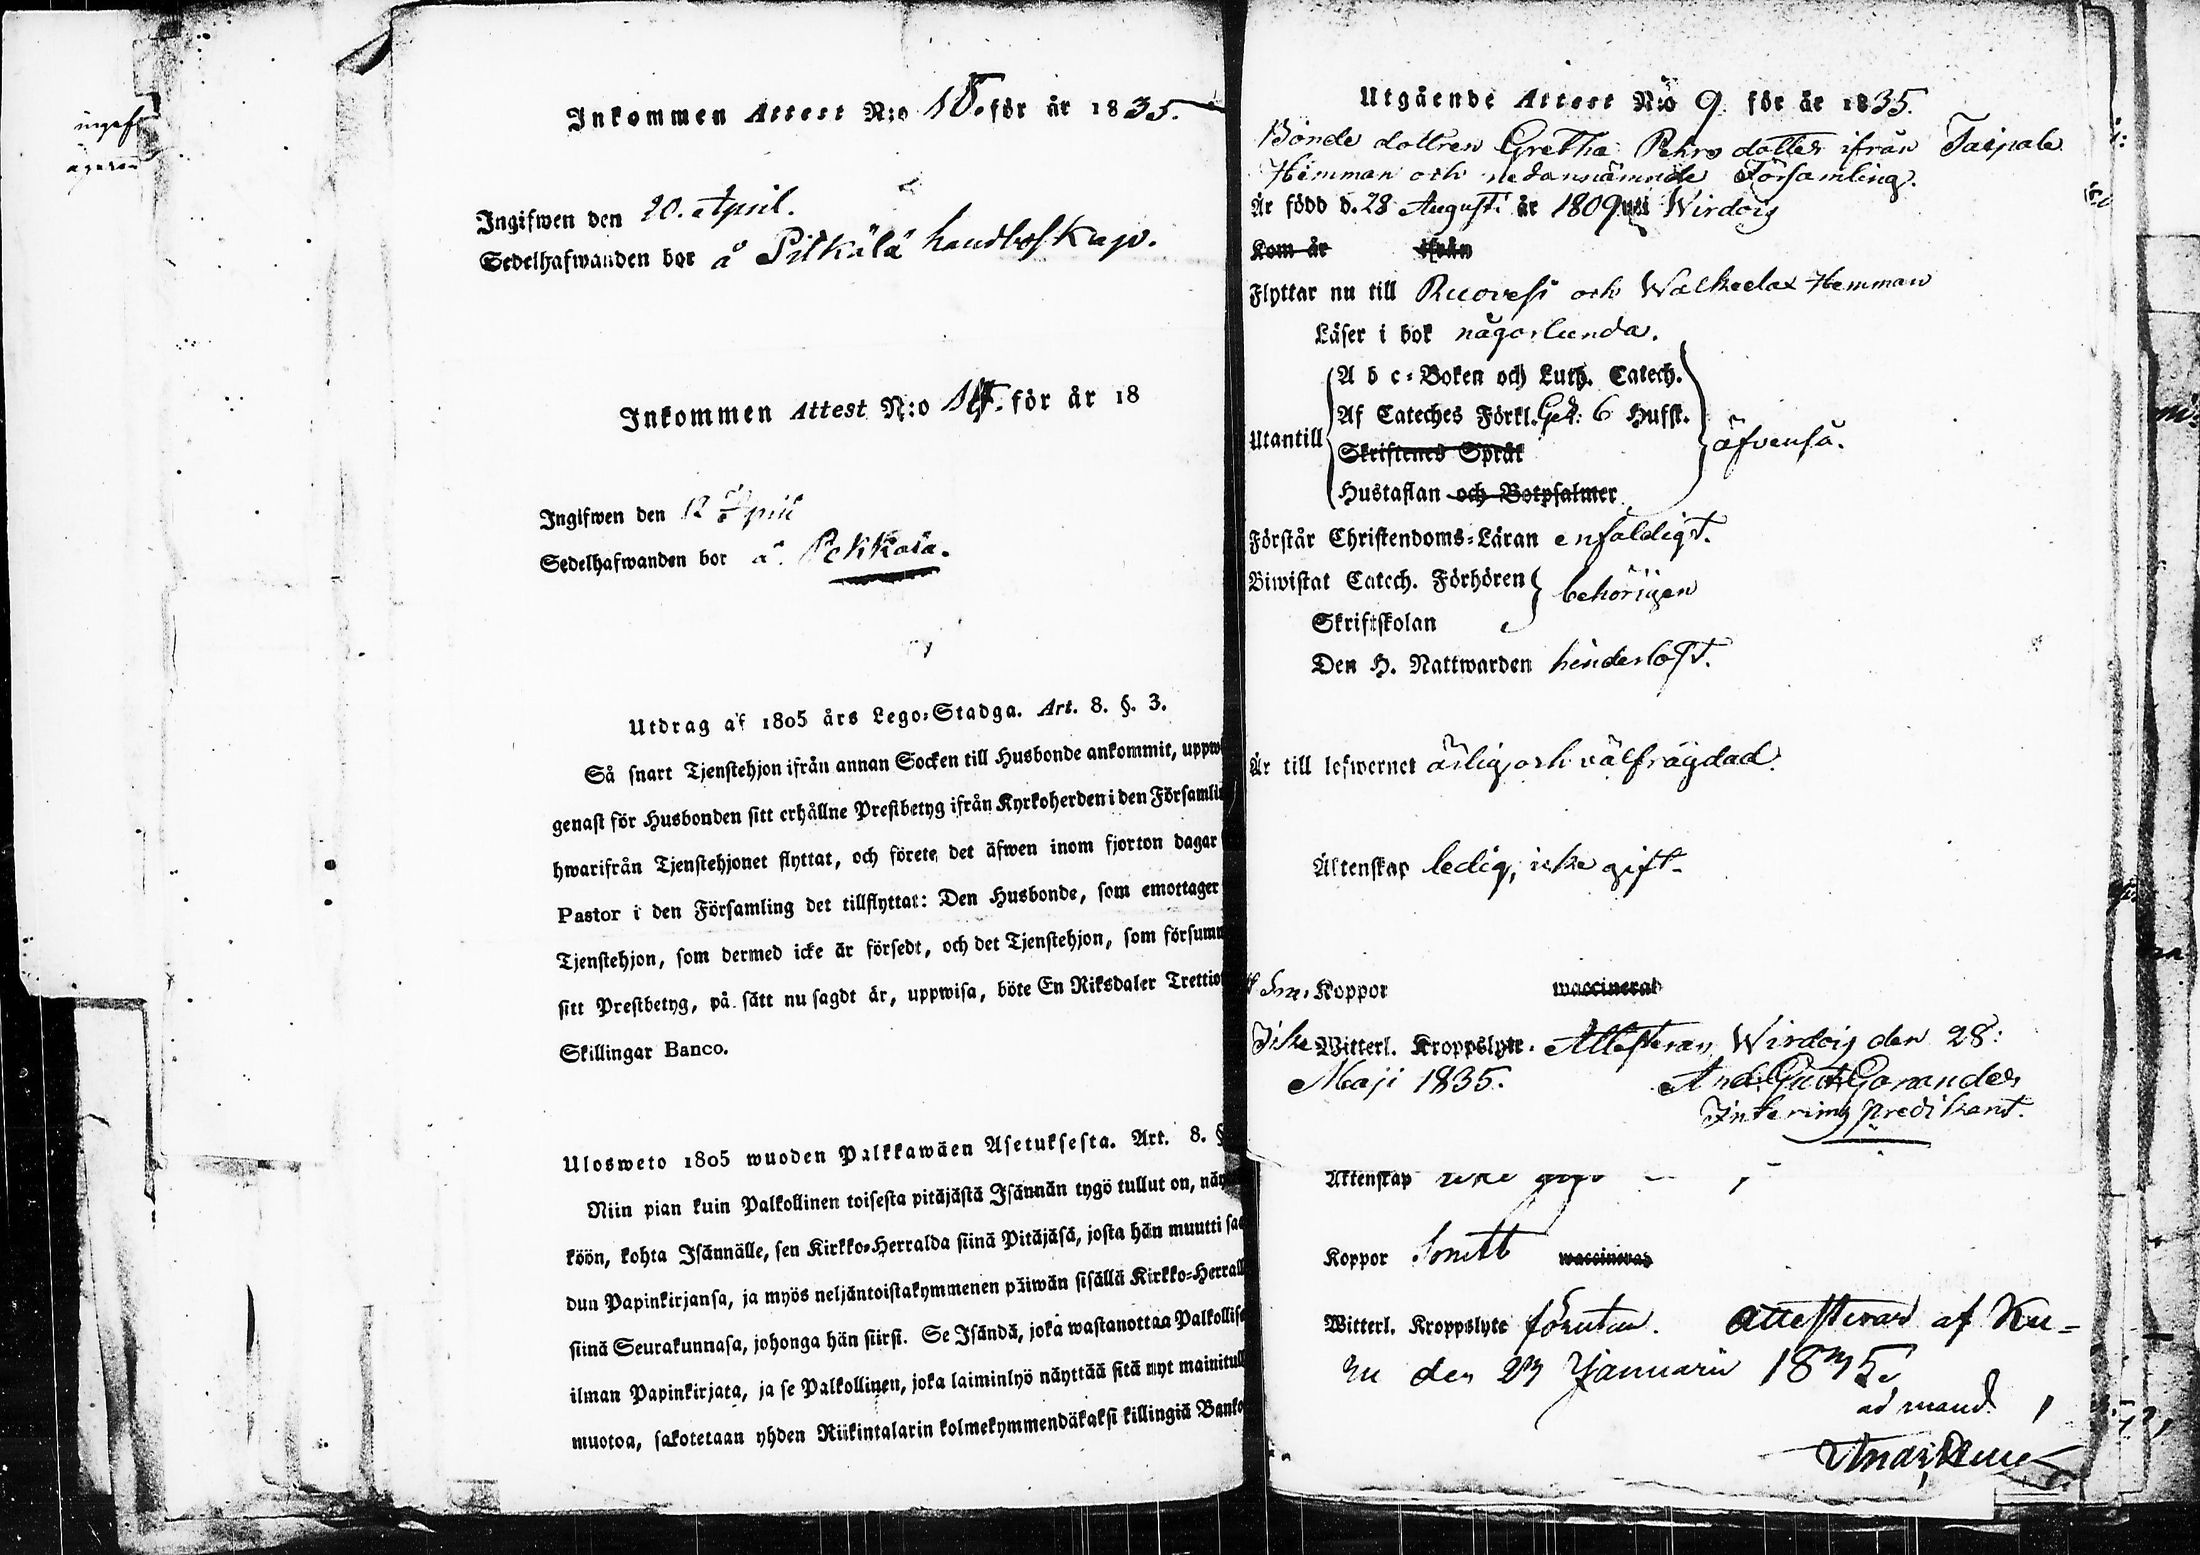 Inkommen Attest N:o 15. för år 1835.
Ingifwen den 20. April.
Sedelhafwanden bor å Pitkälä
Inkommen Attest N:o 14. för år 18
Ingifwen den 12 April
Sedelhafwanden bor å Pekkala.
Utdrag af 1805 års Lego-Stadga. Art. 8. §. 3.
Så snart Tjenstehjon ifrån annan Socken till Husbonde ankommit, uppw
genast för Husbonden sitt erhållne Prestbetyg ifrån Kyrkoherden i den Församlin
hwarifrån Tjenstehjonet flyttat, och förete det äfwen inom fjorton dagar
Pastor i den Församling det tillflyttat: Den Husbonde, som emottager
Tjenstehjon, som dermed icke är försedt, och det Tjenstehjon, som försumm
sitt Prestbetyg, på sätt nu sagdt är, uppwisa, böte En Riksdaler Trettio
Skillingar Banco.
Ulosweto 1805 wuoden Palkkawäen Asetuksesta. Art. 8. §
Niin pian kuin Palkollinen toisesta pitäjästä Isännän tygö tullut on, näy
köön, kohta Isännälle, sen Kirkko-Herralda siinä Pitäjäsä, josta hän muutti saa
dun Papinkirjansa, ja myös neljäntoistakymmenen päiwän sisällä Kirkko-Herrall
siinä Seurakunnasa, johonga hän siirsi. Se Isändä, joka wastanottaa Palkollise
ilman Papinkirjata, ja se Palkollinen, joka laiminlyö näyttää sitä nyt mainitull
muotoa, sakotetaan yhden Riikintalarin kolmekymmendäkaksi killingiä Banko
Utgående Attest N:o 9. för år 1835.
Bonde dottren Gretha Pehrs dotter ifrån Taipale
Hemman och nedannämnde Församling.
Är född d. 28 Augusti år 1809 uti Wirdois
Kom år ifrån
Flyttar nu till Ruovesi och Walkeelax Hemman
Läser i bok någorlunda.
A b c-Boken och Luth. Catech.
Af Cateches Förkl. 6 Hufst.
Utantill
Skriftenes Språk
äfvenså.
Hustaflan och Botpsalmer
Förstår Christendoms-Läran enfaldigt.
Biwistat Catech. Förhören behörigen
Skriftskolan
Den H. Nattwarden hinderlöst.
Är till lefwernet ärlig och välfrägdad.
Äktenskap ledig, icke gift.
Koppor waccinerad
Icke Witterl. Kroppslyte. Attesteras, Wirdois den 28:
Maji 1835. And. Gust. Gorander
Interims predikant.
Äktenskap icke
Koppor waccinerad
Witterl. Kroppslyte förutan. Attesteras af Ku-
ru den Januarii 1835.
ad mand.